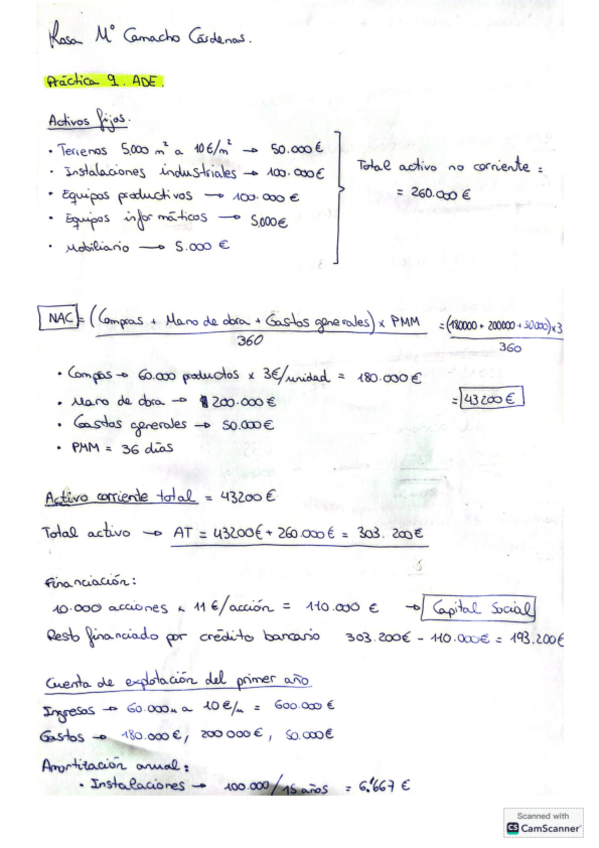 Rosa Mº Camacho Cárdenas.
Práctica 9. ADE.
Activos fijos.
• Terrenos 5.000 m² a 10€/m² → 50.000€
• Instalaciones industriales → 100.000€
• Equipos productivos → 100.000€
• Equipos informáticos → 5.000€
• Mobiliario → 5.000 €
Total activo no corriente =
= 260.000 €
NAC = (Compras + Mano de obra + Gastos generales) x PMM = (180000 + 200000 + 50000) x 3
360 360
• Compras → 60.000 productos x 3€/unidad = 180.000€
• Mano de obra → 200.000€ = 43200€
• Gastos generales → 50.000€
• PMM = 36 días
Activo corriente total = 43200€
Total activo → AT = 43200€ + 260.000€ = 303.200€
Financiación:
10.000 acciones x 11€/acción = 110.000 € → Capital Social
Resto financiado por crédito bancario 303.200€ - 110.000€ = 193.200€
Cuenta de explotación del primer año
Ingresos → 60.000u a 10€/u = 600.000€
Gastos → 180.000€, 200000€, 50.000€
Amortización anual:
• Instalaciones → 100.000/15 años = 6.667 €
Scanned with
CS CamScanner